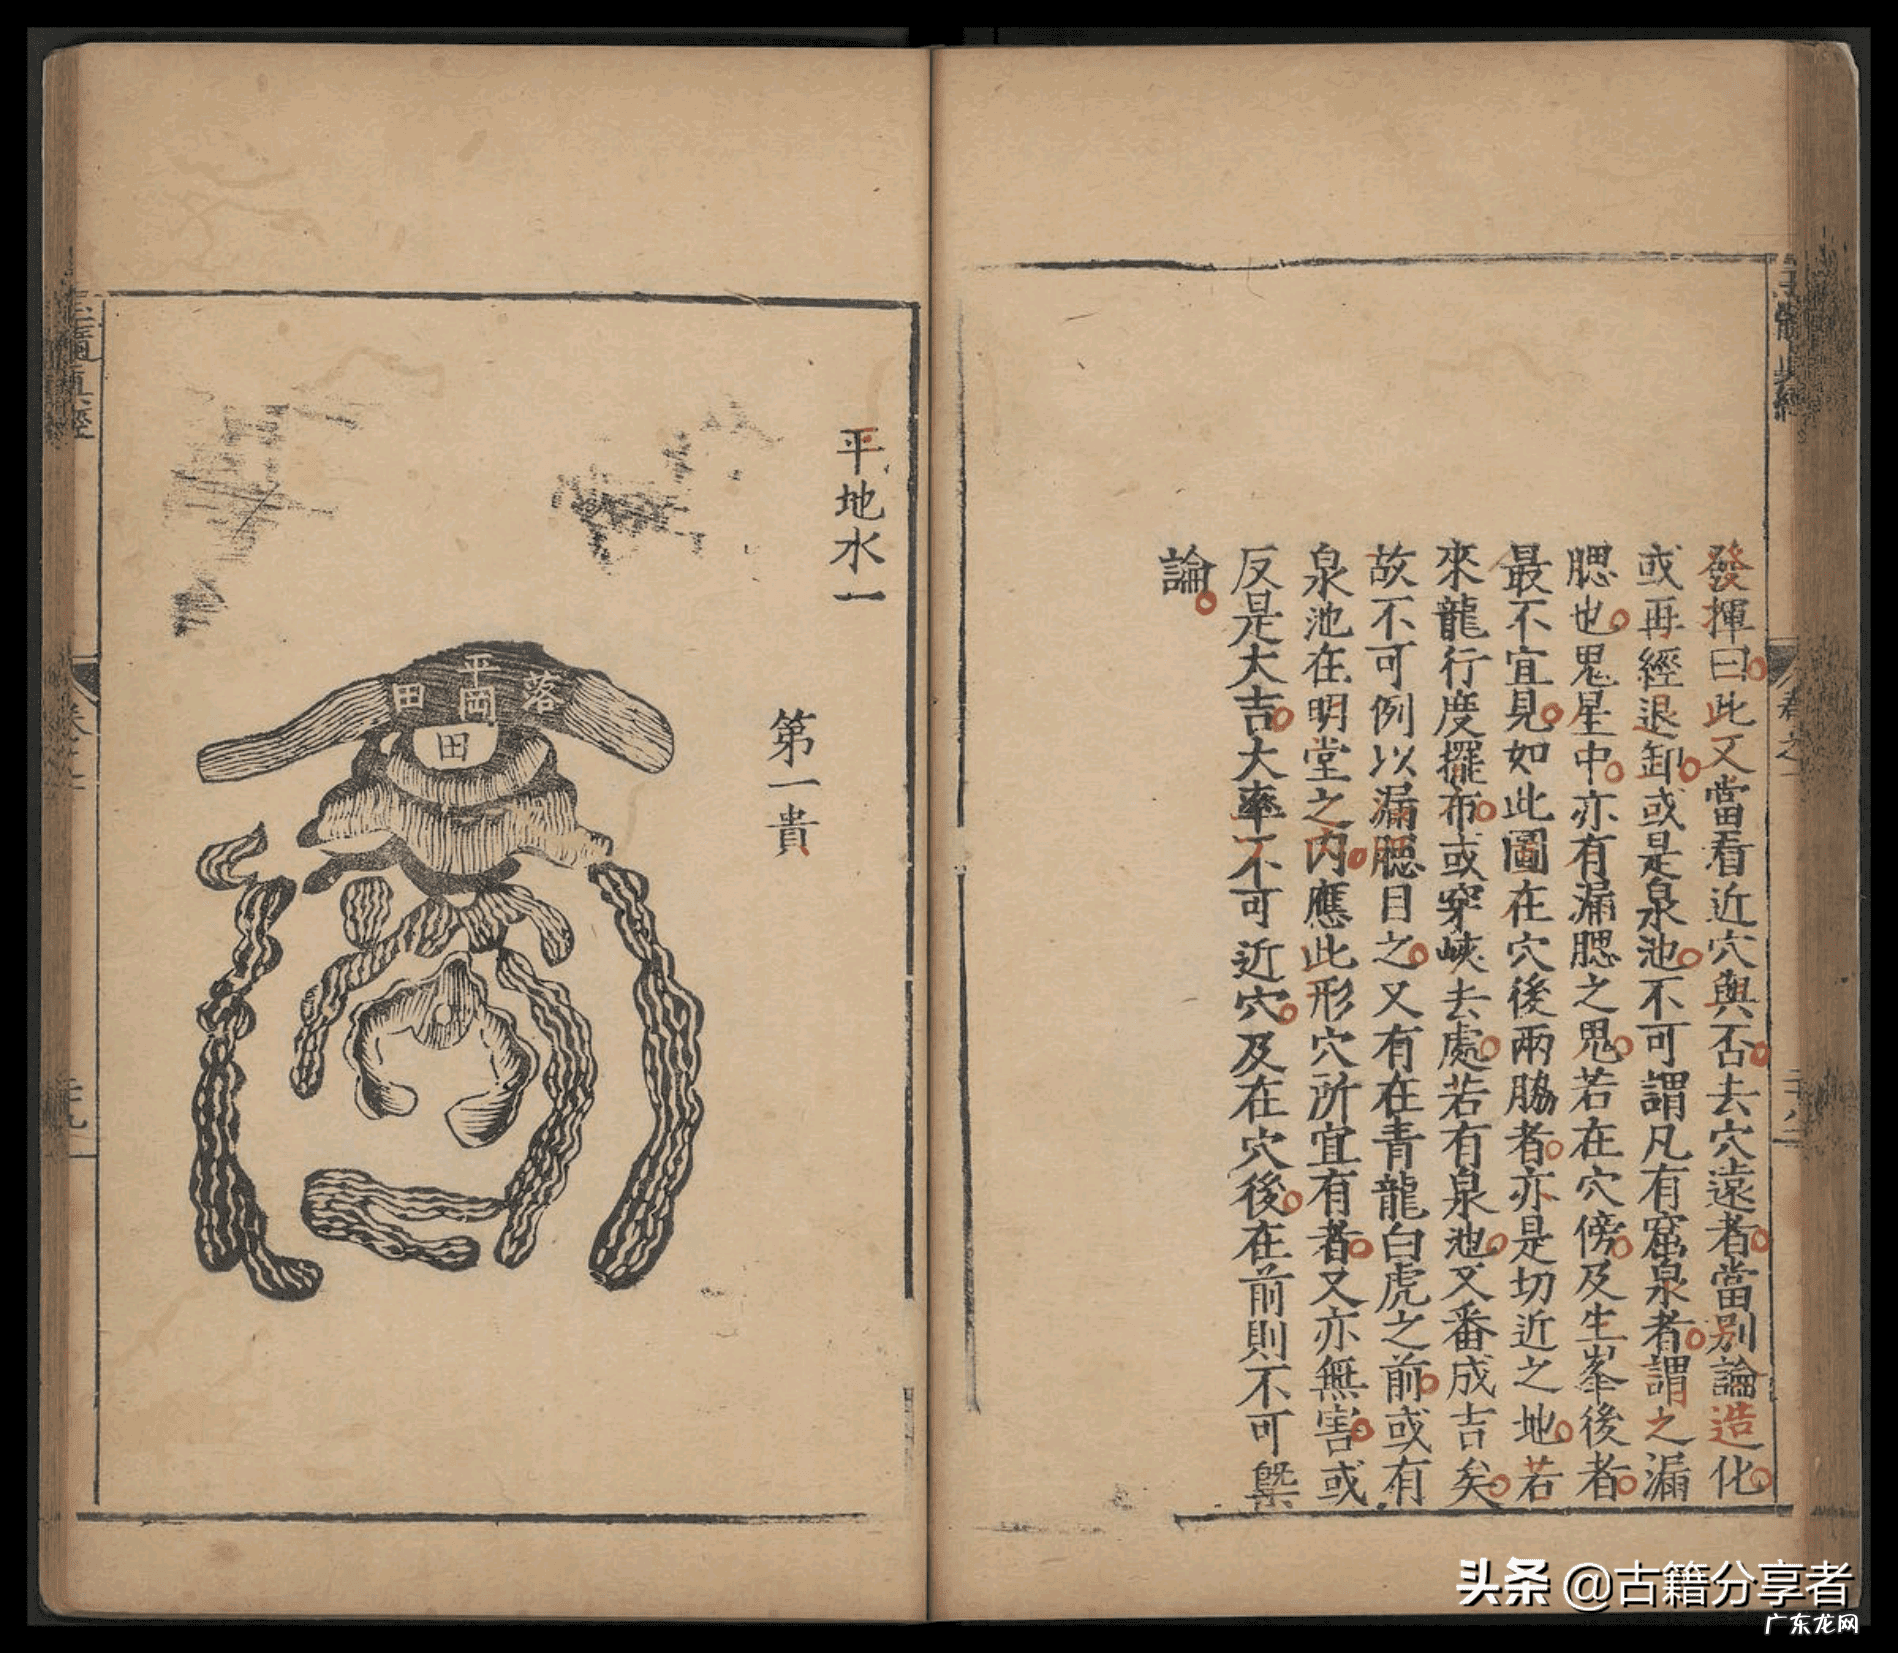 卷之一
發揮曰此又當看近穴與否去穴遠者當別論造化
或再經退卸或是泉池不可謂凡有窟泉者謂之漏
腮也鬼星中亦有漏腮之鬼若在穴傍及生峯後者
最不宜見如此圖在穴後兩脇者亦是切近之地若
來龍行度擺布或穿峽去處若有泉池又番成吉矣
故不可例以漏腮目之又有在青龍白虎之前或有
泉池在明堂之內應此形穴所宜有者又亦無害或
反是大吉大率不可近穴及在穴後在前則不可槩
論
平地水一
第一貴
落
平岡
田
田
头条 @古籍分享者
广东龙网